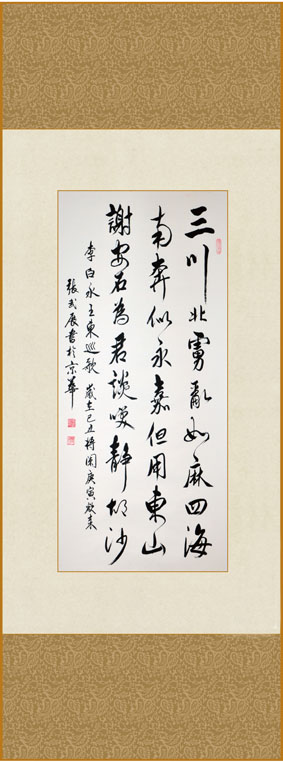 三川北虏亂如麻四海
南奔似永嘉但用東山
謝安石為君談笑靜胡沙
李白永王東巡歌 歲在己丑將闌庚寅欲来
張武展書於京華